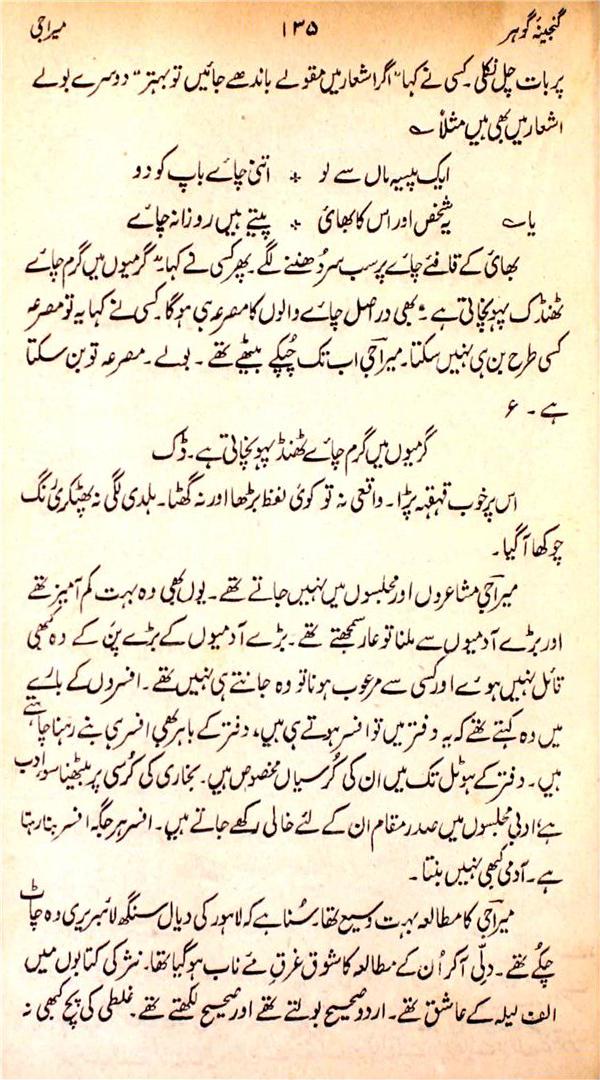 گنجینۂ گوہر ۱۳۵ میراجی
پر بات چل نکلی۔ کسی نے کہا "اگر اشعار میں مقولے باندھے جائیں تو بہتر" دوسرے بولے
اشعار میں بھی ہیں مثلاً ؎
ایک پیسہ ماں سے لو ؞ اتنی چاۓ باپ کو دو
یا؎ یہ شخص اور اس کا بھائ ؞ پیتے ہیں روزانہ چاۓ
بھائ کے قافئے چاۓ پر سب سر دُھننے لگے۔ پھر کسی نے کہا۔ "گرمیوں میں گرم چاۓ
ٹھنڈک پہونچاتی ہے۔" بھی دراصل چاۓ والوں کا مصرعہ ہی ہوگا۔ کسی نے کہا یہ تو مصرعہ
کسی طرح بن ہی نہیں سکتا۔ میراجی اب تک چُپکے بیٹھے تھے۔ بولے۔ مصرعہ تو بن سکتا
ہے۔ ؏
گرمیوں میں گرم چاۓ ٹھنڈ پہونچاتی ہے۔ ڈک
اس پر خوب قہقہہ پڑا۔ واقعی نہ تو کوئ لفظ بڑھا اور نہ گھٹا۔ ہلدی لگی نہ پھٹکری رنگ
چوکھا آگیا۔
میراجی مشاعروں اور مجلسوں میں نہیں جاتے تھے۔ یوں بھی وہ بہت کم آمیز تھے
اور بڑے آدمیوں سے ملنا تو عار سمجھتے تھے۔ بڑے آدمیوں کے بڑے پن کے وہ کبھی
قائل نہیں ہوۓ اور کسی سے مرعوب ہونا تو وہ جانتے ہی نہیں تھے۔ افسروں کے بارے
میں وہ کہتے تھے کہ یہ دفتر میں تو افسر ہوتے ہی ہیں، دفتر کے باہر بھی افسر ہی بنے رہنا چاہتے
ہیں۔ دفتر کے ہوٹل تک میں ان کی کُرسیاں مخصوص ہیں۔ بخاری کی کُرسی پر بیٹھنا سوۂ ادب
ہے، ادبی مجلسوں میں صدر مقام ان کے لئے خالی رکھے جاتے ہیں۔ افسر ہر جگہ افسر بنا رہتا
ہے۔ آدمی کبھی نہیں بنتا۔
میراجی کا مطالعہ بہت وسیع تھا۔ سُنا ہے کہ لاہور کی دیال سنگھ لائبریری وہ چاٹ
چکے تھے۔ دلّی آکر اُن کے مطالعہ کا شوق غرقِ مے ناب ہوگیا تھا۔ نثر کی کتابوں میں
الف لیلہ کے عاشق تھے۔ اردو صحیح بولتے تھے اور صحیح لکھتے تھے۔ غلطی کی پچ کبھی نہ